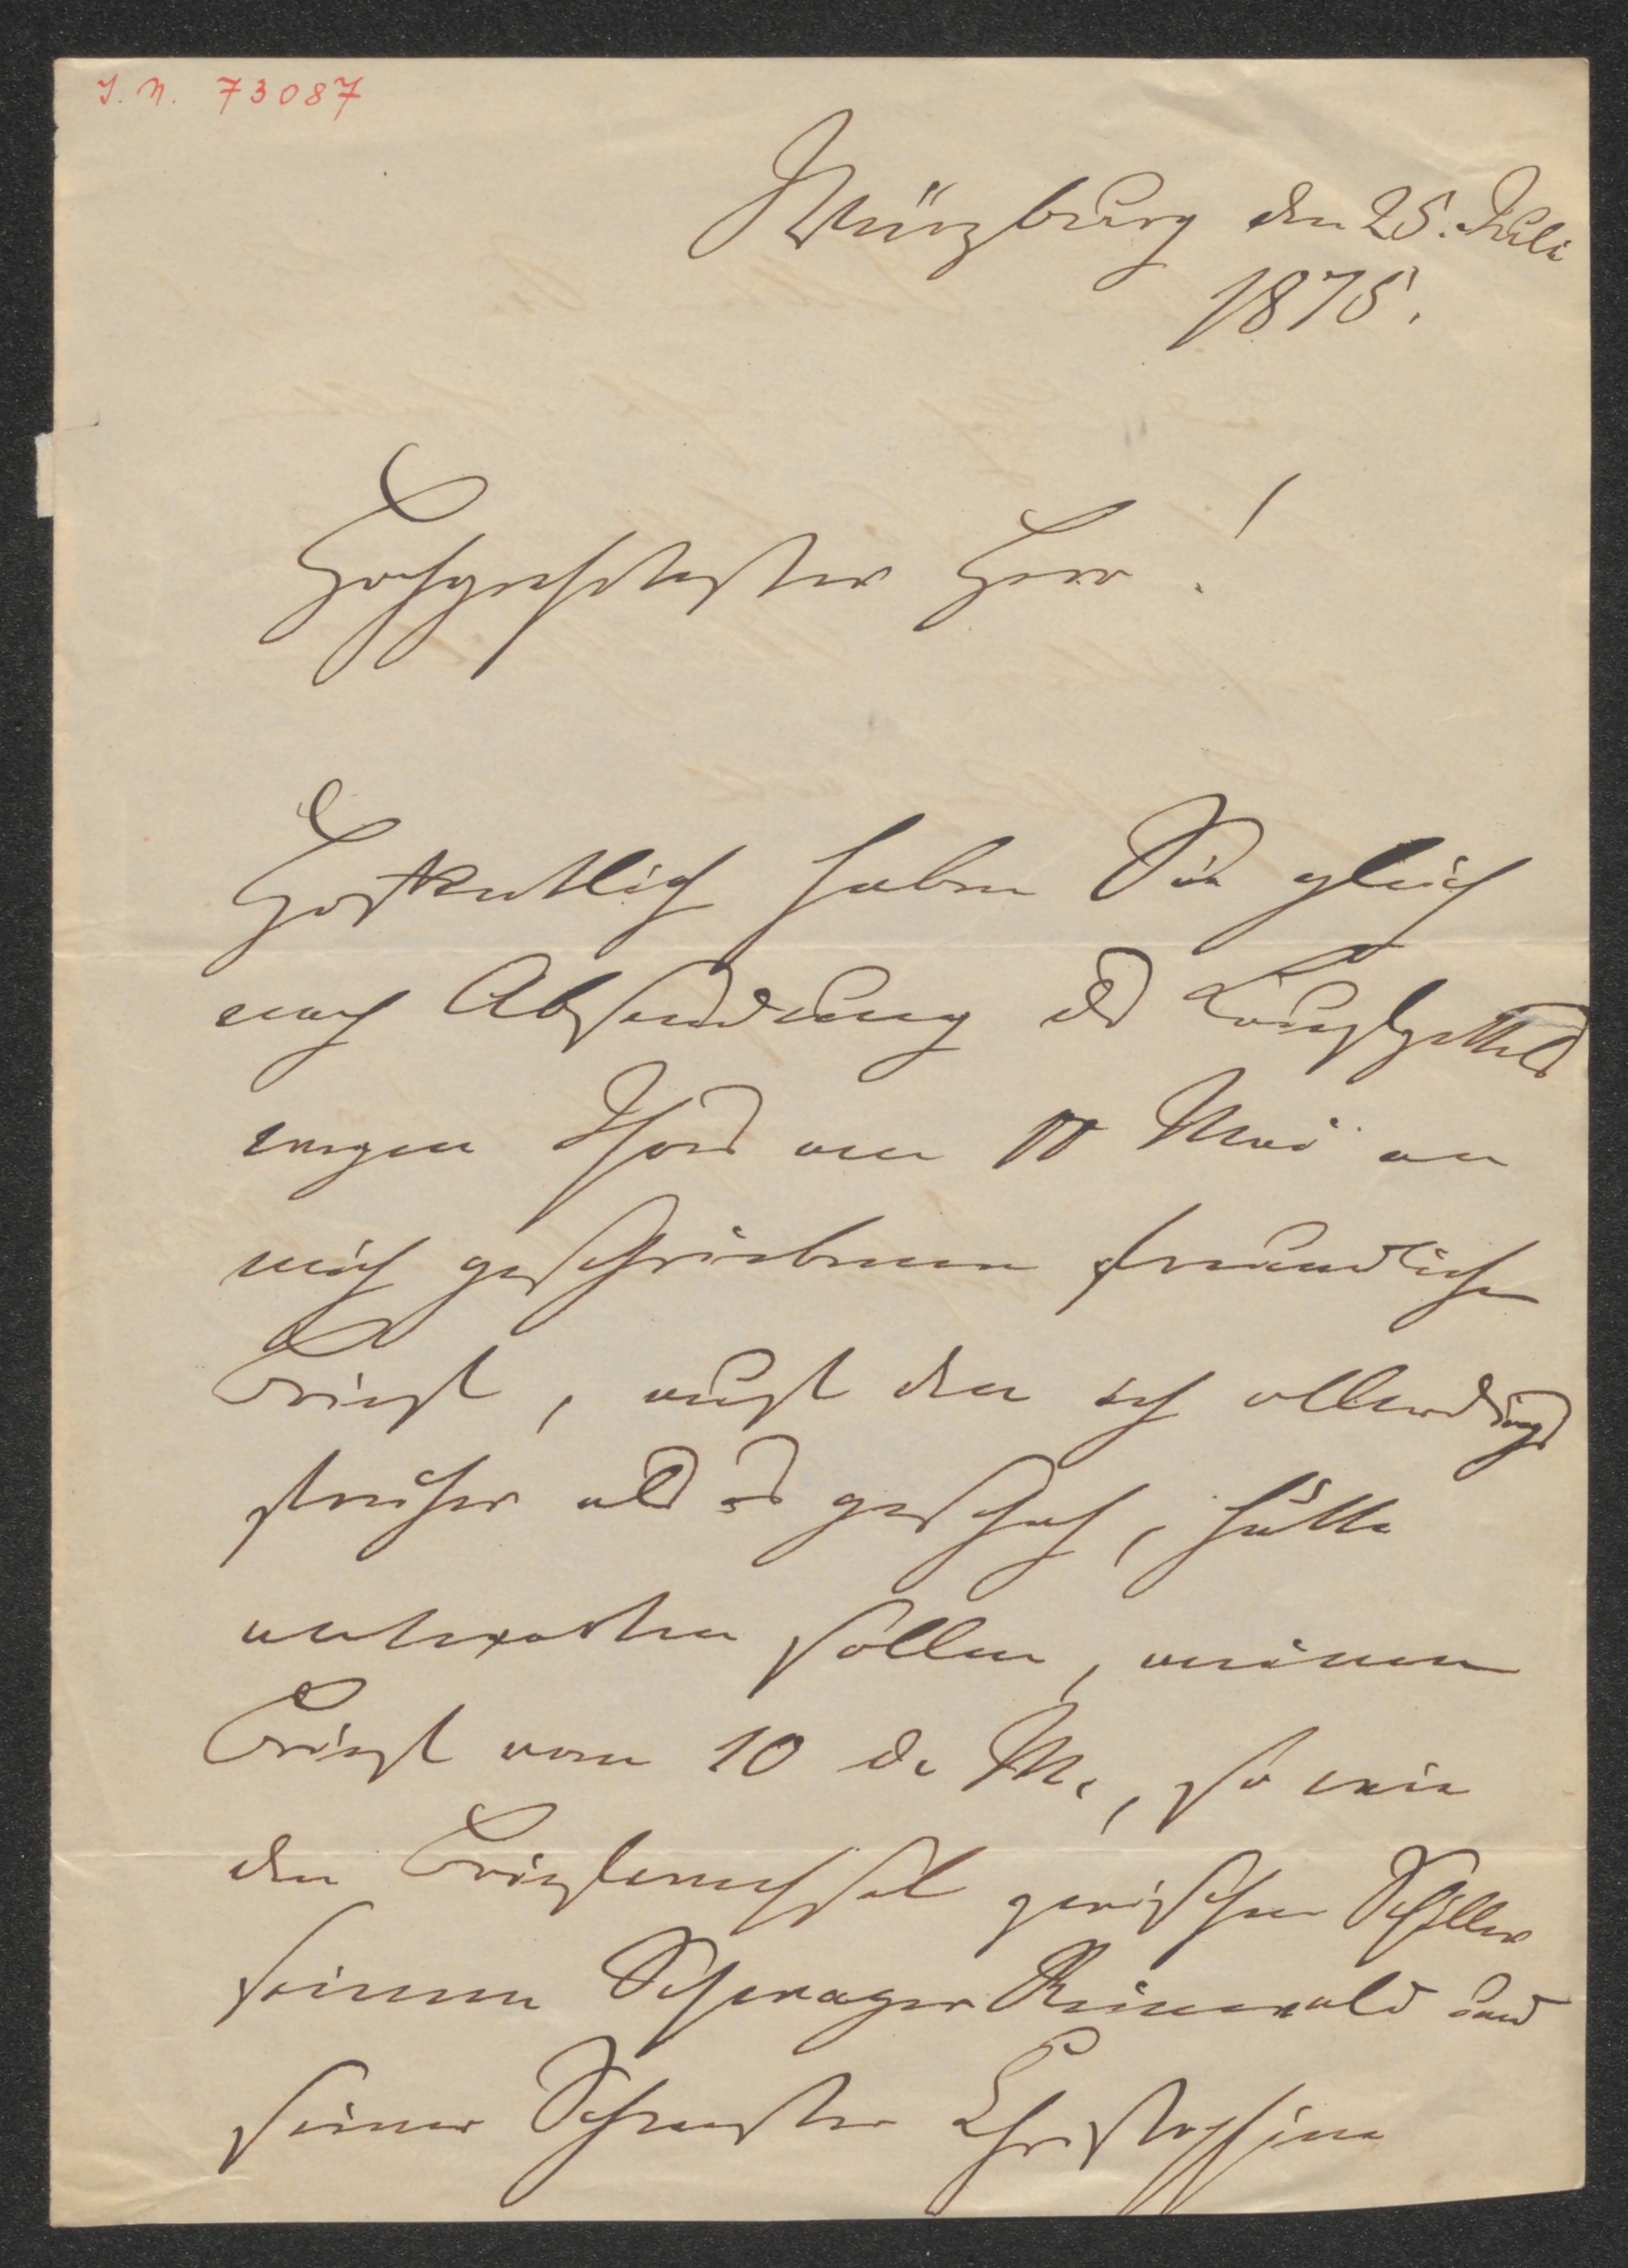 I. N. 73087
Würzburg den 25. Juli
1875.
Hochgeehrtester Herr!
Hoffentlich haben Sie gleich
nach Absendung des Laufzettels
wegen Ihres am 11 Mai an
mich geschriebenen freundlichen
Briefs, auf den ich allerdings
früher als es geschah, hätte
antworten sollen, meinen
Brief vom 10 d. M., so wie
den Briefwechsel zwischen Schiller
seinem Schwager Reinwald und
seiner Schwester Christophine